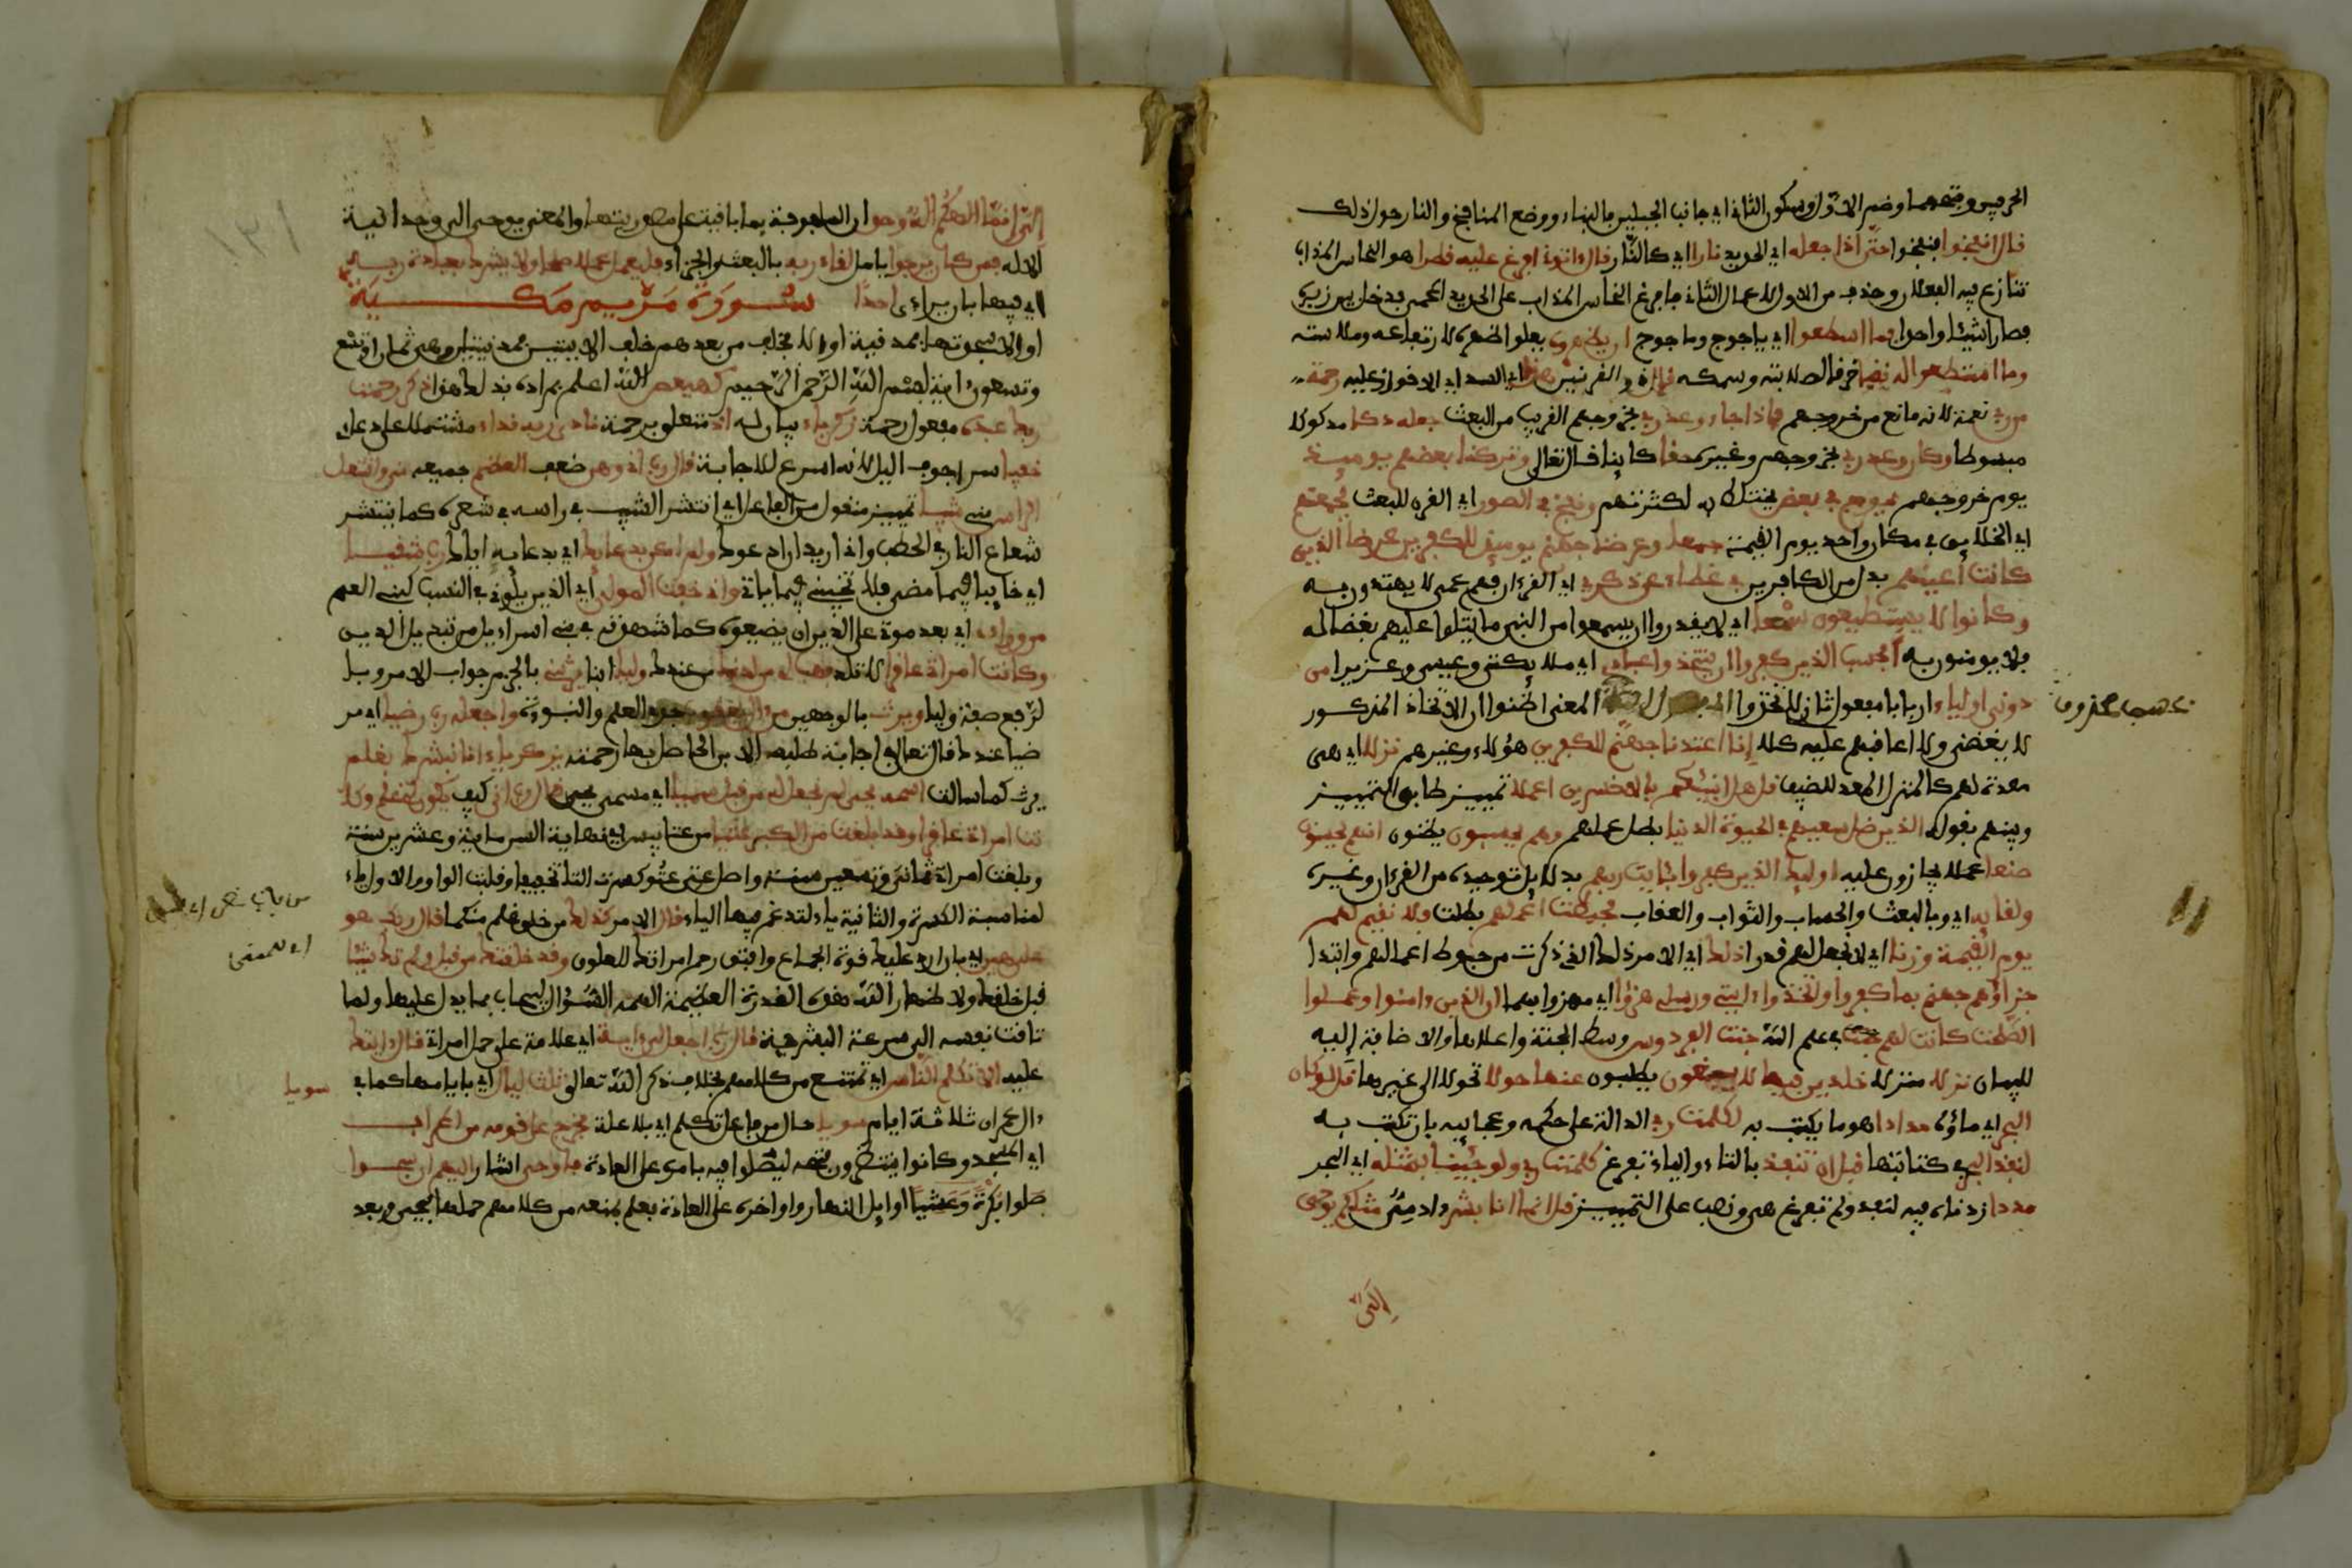 الحرفين وفتحهما وضم الاول وسكون الثاني اي جانب الجبلين بالبناء ووضع المنافخ والنار حول ذلك
قال انفخوا فنفخوا حتى اذا جعله اي الحديد نارا اي كالنار قال اتونى افرغ عليه قطرا هو النحاس المذاب
تنازع فيه الفعلان وحذف من الاول لاعمال الثاني فافرغ النحاس المذاب على الحديد المحمى فدخل بين زبره
فصار اشيئا واحدا فما اسطعوا اي ياجوج وماجوج ان يظهروه يعلوا ظهره لارتفاعه وملاسته
وما استطعوا له نقبا خرقا لصلابته وسمكه قال ذو القرنين هذا اي السد اي الاقدار عليه رحمة
من ربي نعمة لانه مانع من خروجهم فاذا جاء وعد ربي بخروجهم القريب من البعث جعله دكا مدكوكا
مبسوطا وكان وعد ربي بخروجهم وغيره حقا كاينا قال تعالى وتركنا بعضهم يوميذ
يوم خروجهم يموج في بعض يختلط به لكثرتهم ونفخ في الصور اي القرن للبعث فجمعنهم
اي الخلايق في مكان واحد يوم القيمة جمعا وعرضنا جهنم يوميذ للكفرين عرضا الذين
كانت اعينهم بدل من الكافرين في غطاء عن ذكري اي القرءان فهم عمى لا يهتدون به
وكانوا لا يستطيعون سمعا اي لا يقدروا ان يسمعوا من النبي ما يتلوا عليهم بغضا له
فلا يومنون به افحسب الذين كفروا ان يتخذوا عبادي اي ملائكتي وعيسى وعزيرا من
دوني اولياء اربابا مفعول ثان ليتخذوا المعنى اظنوا ان الاتخاذ المذكور
لا يغضبني ولا اعاقبهم عليه كلا انا اعتدنا جهنم للكفرين هؤلاء وغيرهم نزلا اي هي
معدة لهم كالمنزل المعد للضيف قل هل ننبئكم بالاخسرين اعملا تمييز طابق التمييز
وبينهم بقوله الذين ضل سعيهم في الحيوة الدنيا بطل عملهم وهم يحسبون يظنون انهم يحسنون
صنعا عملا يجازون عليه اوليك الذين كفروا بئايت ربهم بدلايل توحيده من القرءان وغيره
ولقايه اي وبالبعث والحساب والثواب والعقاب فحبطت اعملهم بطلت فلا نقيم لهم
يوم القيمة وزنا اي لا نجعل لهم قدرا ذلك اي الامر ذلك الذي ذكرت من حبوط اعمالهم وابتدا
جزاؤهم جهنم بما كفروا واتخذوا ءايتي ورسلي هزؤا اي مهزوا بهما ان الذين ءامنوا وعملوا
الصلحت كانت لهم في علم الله جنت الفردوس وسط الجنة واعلاها والاضافة اليه
للبيان نزلا منزلا خلدين فيها لا يبغون يطلبون عنها حولا تحولا الى غيرها قل لو كان
البحر اي ماؤه مدادا هو ما يكتب به لكلمت ربي الدالة على حكمه وعجايبه بان تكتب به
لنفد البحر في كتابتها قبل ان تنفد بالتاء والياء تفرغ كلمت ربي ولو جئنا بمثله اي البحر
مددا زدناه فيه لنفد ولم تفرغ هي ونصب على التمييز قل انما انا بشر ءادمي مثلكم يوحى
الي
الي انما الهكم اله وحد ان المكفوفة بما باقية على مصدريتها والمعنى يوحى الي وحدانية
الاله فمن كان يرجوا يامل لقاء ربه بالبعث والجزاء فليعمل عملا صلحا ولا يشرك بعبادة ربه
اي فيها بان يراءى احدا سورة مريم مكية
او الا سجدتها فمدنية او الا فخلف من بعدهم خلف الايتين فمدنيتان وهي ثمان او تسع
وتسعون اية بسم الله الرحمن الرحيم كهيعص الله اعلم بمراده بذلك هذا ذكر رحمت
ربك عبده مفعول رحمة زكرياء بيان له اذ متعلق برحمة نادى ربه نداء مشتملا على دعاء
خفيا سرا جوف اليل لانه اسرع للاجابة قال رب اني وهن ضعف العظم جميعه مني واشتعل
الراس مني شيبا تمييز منقول من الفاعل اي انتشر الشيب في راسه في شعره كما ينتشر
شعاع النار في الحطب واني اريد ان ادعوك ولم اكن بدعايك اي بدعاي اياك رب شقيا
اي خايبا فيما مضى فلا تخيبني فيما ياتي واني خفت المولي اي الذين يلوني في النسب كبني العم
من وراءي اي بعد موتي على الدين ان يضيعوه كما شاهدته في بني اسراءيل من تبديل الدين
وكانت امراتي عاقرا لا تلد فهب لي من لدنك من عندك وليا ابنا يرثني بالجزم جواب الامر وبا
لرفع صفة وليا ويرث بالوجهين من ءال يعقوب جدي العلم والنبوة واجعله رب رضيا اي مر
ضيا عندك قال تعالى في اجابة طلبه الابن الحاصل بها رحمته يزكرياء انا نبشرك بغلم
يرث كما سالت اسمه يحيى لم نجعل له من قبل سميا اي مسمى بيحيى قال رب انى كيف يكون لي غلم وكا
نت امراتي عاقرا وقد بلغت من الكبر عتيا من عتا يبس اي نهاية السن ماية وعشرين سنة
وبلغت امراتي ثماني وتسعين سنة واصل عتي عتوو كسرت التا تخفيفا وقلبت الواو الاولى ياء
لمناسبة الكسرة والثانية ياء لتدغم فيها الياء قال الامر كذلك من خلق غلم منكما قال ربك هو
علي هين اي بان ارد عليك قوة الجماع وافتق رحم امراتك للعلوق وقد خلقتك من قبل ولم تك شيئا
قبل خلقك ولاظهار الله هذه القدرة العظيمة الهمه السؤال ليجاب بما يدل عليها ولما
تاقت نفسه الى سرعة المبشر به قال رب اجعل لي ءاية اي علامة على حمل امراتي قال ءايتك
عليه الا تكلم الناس اي تمتنع من كلامهم بخلاف ذكر الله تعالى ثلث ليال اي بايامها كما في
ءال عمران ثلاثة ايام سويا حال من فاعل تكلم اي بلا علة فخرج على قومه من المحراب
اي المسجد وكانوا ينتظرون فتحه ليصلوا فيه بامره على العادة فاوحى اشار اليهم ان سبحوا
صلوا بكرة وعشيا اوايل النهار واواخره على العادة فعلم بمنعه من كلامهم حملها بيحيى وبعد
سويا